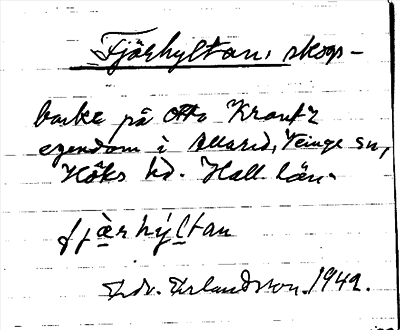 Fjärhyltan, skogs-
backe på Otto Krantz
egendom i Allarid, Veinge sn,
Höks hd. Hall. län.
fjæ̀rhýltan
Erlandsson. 1942.